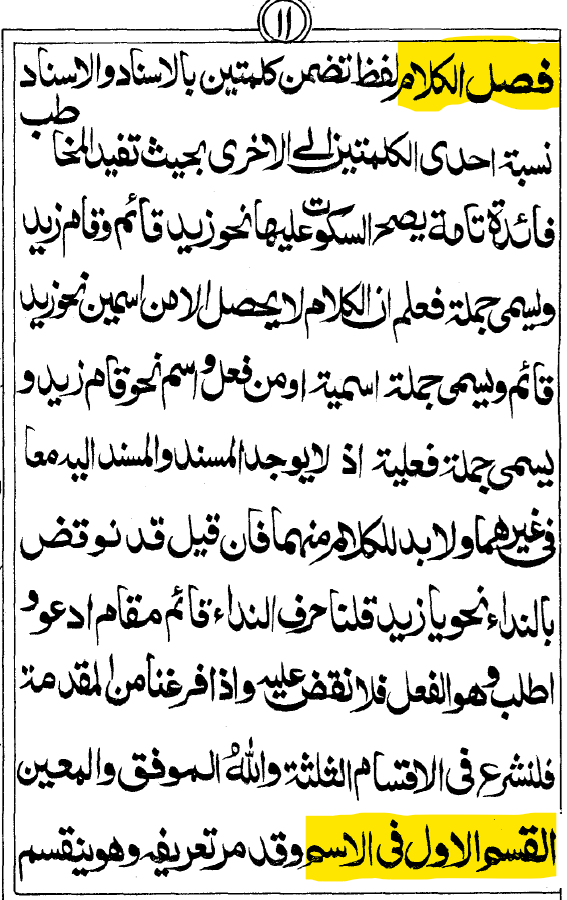 ۱۱
فصل الكلام لفظ تضمن كلمتين بالاسناد والاسناد
نسبة احدى الكلمتين الى الاخرى بحيث تفيد المخاطب
فائدة تامة يصح السكوت عليها نحو زيد قائم وقام زيد
ويسمى جملة فعلم ان الكلام لا يحصل الا من اسمين نحو زيد
قائم ويسمى جملة اسمية او من فعل واسم نحو قام زيد و
يسمى جملة فعلية اذ لا يوجد المسند والمسند اليه معا
فى غيرهما ولا بد للكلام منهما فان قيل قد نوقض
بالنداء نحو يا زيد قلنا حرف النداء قائم مقام ادعو و
اطلب وهو الفعل فلا نقض عليه واذا فرغنا من المقدمة
فلنشرع فى الاقسام الثلثة والله الموفق والمعين
القسم الاول فى الاسم وقد مر تعريفه وهو ينقسم